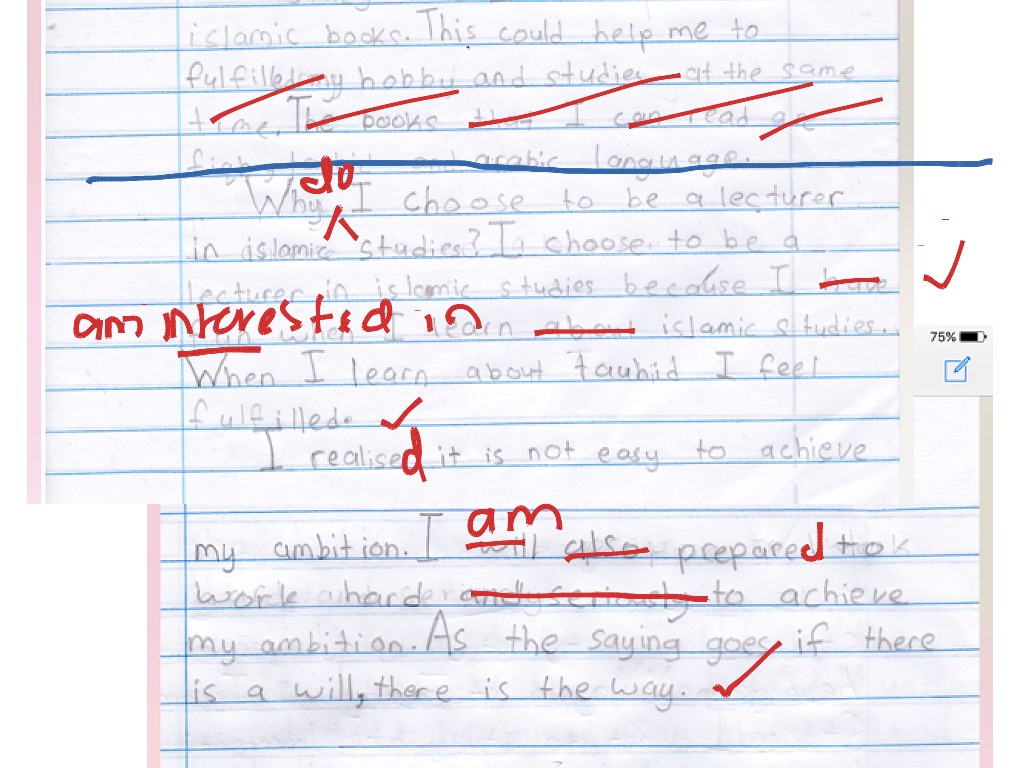 islamic books. This could help me to
fulfilled my hobby and studies at the same
time. The books that I can read are
fiqh, and arabic language.
do
Why I choose to be a lecturer
in islamic studies? I choose to be a
lecturer in islamic studies because I have
am interested in
fun when I learn about islamic studies.
75%
When I learn about Tauhid I feel
fulfilled.
I realised it is not easy to achieve
am
my ambition. I will also prepared to
work harder and seriously to achieve
my ambition. As the saying goes, if there
is a will, there is the way.